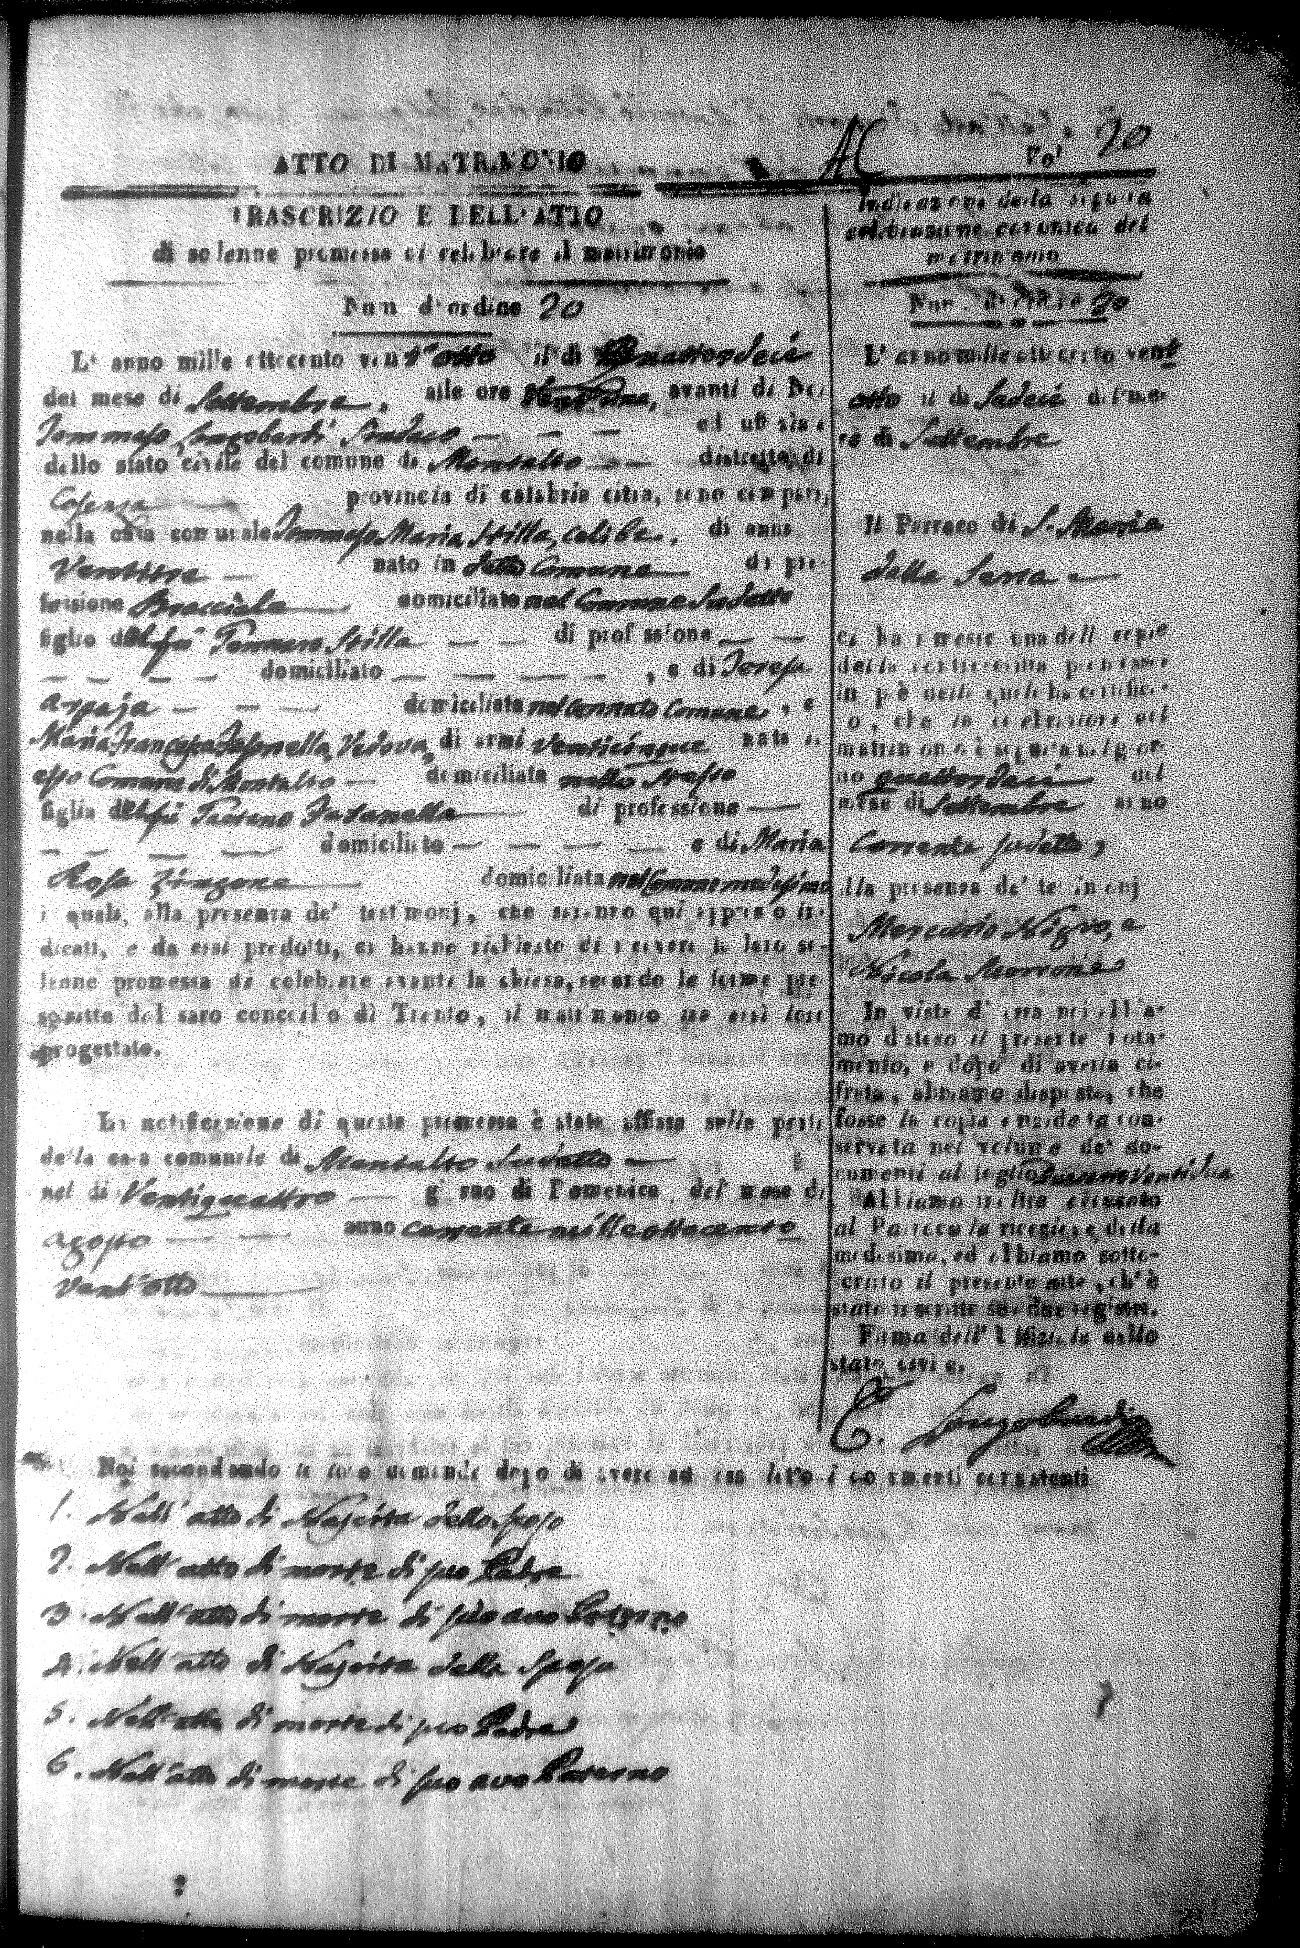 ATTO DI MATRIMONIO
Fol 20
TRASCRIZIONE DELL'ATTO
di solenne promessa di celebrare il matrimonio
Num d'ordine 20
L' anno mille ottocento vent'otto il dì quattordeci
del mese di Settembre, alle ore avanti di Noi
Tommaso Longobardi Sindaco — — — ed uffiziale
dello stato civile del comune di Montalto — — distretto di
Cosenza provincia di calabria citra, sono comparsi
nella casa comunale Tommaso Maria Stilla, celibe, di anni
Ventitre — nato in detto Comune — di pro-
fessione Bracciale domiciliato nel Comune sudetto
figlio del fù Gennaro Stilla — — di professione — —
— — — — domiciliato — — — — , e di Teresa
Arpaja — — — domiciliata nel connato Comune, e
Maria Francesca Fasanella, Vedova, di anni venticinque nata in
esso Comune di Montalto — domiciliata nello stesso
figlia del fù Fasanella di professione —
— — — — domiciliato — — — — e di Maria
Rosa Zingone domiciliata nel Comune medesimo
i quali, alla presenza de' testimonj, che saranno qui appresso in-
dicati, e da essi prodotti, ci hanno richiesto di ricevere la loro so-
lenne promessa di celebrare avanti la chiesa, secondo le forme pre-
scritte dal sacro concilio di Trento, il matrimonio tra essi loro
progettato.
La notificazione di questa promessa è stata affissa sulla porta
della casa comunale di Montalto Sudetto —
nel dì Ventiquattro — giorno di Domenica del mese di
Agosto — — anno corrente mille ottocento
vent'otto
Noi secondando le loro domande dopo di avere ad essi letto i documenti consistenti
1. Nell' atto di Nascita dello sposo
2. Nell' atto di morte di suo Padre
3. Nell' atto di morte di suo avo Paterno
4. Nell' atto di Nascita della Sposa
5. Nell' atto di morte di suo Padre
6. Nell' atto di morte di suo avo Paterno
Indicazione della seguita
celebrazione canonica del
matrimonio
Num. d'ordine 20
L' anno mille ottocento vent
otto il dì Sedeci del me-
se di Settembre
Il Parroco di S. Maria
della Serra —
ci ha rimesso una delle copie
della controscritta promessa
in piè della quale ha certifica-
to, che la celebrazione del
matrimonio è seguita nel gior-
no quattordeci del
mese di Settembre anno
Corrente sudetto,
alla presenza de' testimonj
Mercurio Nigro, e
Nicola Morrone
In vista di essa noi abbia-
mo disteso il presente nota-
mento, e dopo di averla ci-
frata, abbiamo disposto, che
fosse la copia enunciata con-
servata nel volume de' do-
cumenti al foglio
Abbiamo inoltre accusato
al Parroco la ricezione della
medesima, ed abbiamo sotto-
scritto il presente atto, ch'è
stato inscritto su i due registri.
Firma dell' Uffiziale dello
stato civile.
T. Longobardi